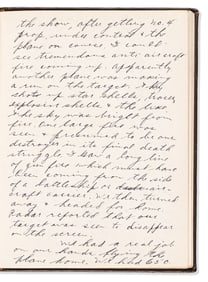 the show, after getting no. 4
prop under control & the
plane on course. I could
see tremendous anti aircraft
fire coming up. Apparently
another plane was making
a run on the target. They
shot up star shells, tracer,
explosive shells & the
the sky was bright from
fire. One large fire was
seen & presumed to be one
destroyer in its final death
struggle. I saw a long line
of gun fire which must have
been coming from the side
of a battleship or air-
craft carrier. We then turned
away & headed for home.
Radar reported that our
target was seen to disappear
on the screen.
We had a real job
on our hands flying the
plane home. We had 650